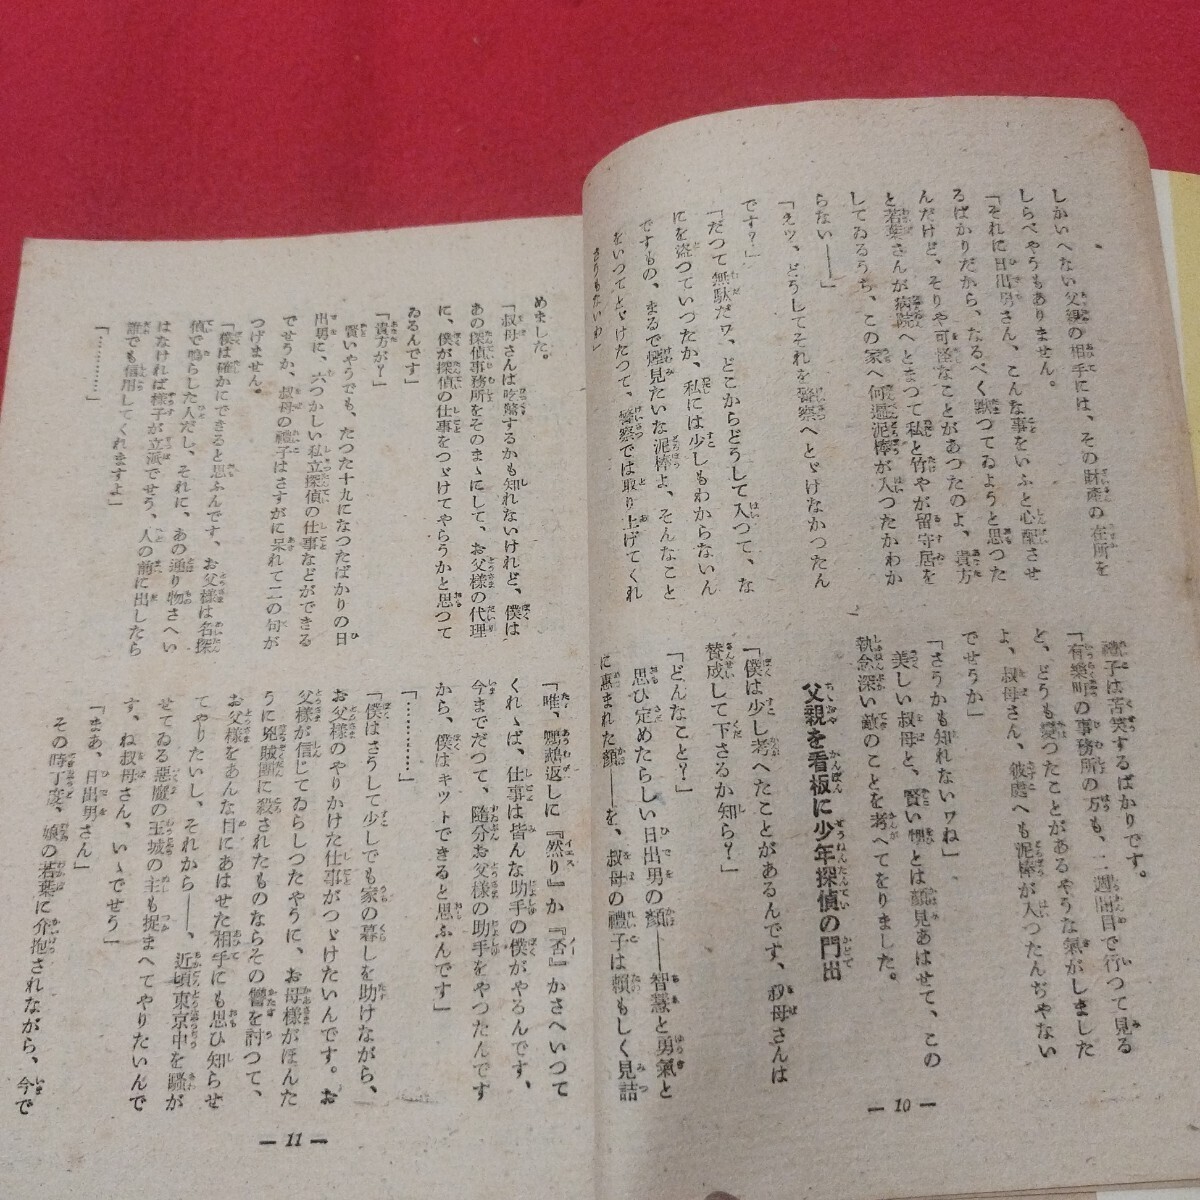 しかいへない父親の相手には、その財産の在所を
しらべやうもありません。
「それに日出男さん、こんな事をいふと心配させ
るばかりだから、なるべく默つてゐようと思つた
んだけど、そりや可怪なことがあつたのよ、貴方
と若葉さんが病院へとまつて私と竹やが留守居を
してゐるうち、この家へ何遍泥棒が入つたかわか
らない――」
「えツ、どうしてそれを警察へとゞけなかつたん
です？」
「だつて無駄だワ、どこからどうして入つて、な
にを盗つていつたか、私には少しもわからないん
ですもの、まるで煙見たいな泥棒よ、そんなこと
をいつてとゞけたつて、警察では取り上げてくれ
さうもないわ」
禮子は苦笑するばかりです。
「有樂町の事務所の方も、二週間目で行つて見る
と、どうも變つたことがあるやうな氣がしました
よ、叔母さん、彼處へも泥棒が入つたんぢやない
でせうか」
「さうかも知れないワね」
美しい叔母と、賢い甥とは顔見あはせて、この
執念深い敵のことを考へてをりました。
父親を看板に少年探偵の門出
「僕は少し考へたことがあるんです、叔母さんは
賛成して下さるか知ら？」
「どんなこと？」
思ひ定めたらしい日出男の顔――智慧と勇氣と
に惠まれた顔――を、叔母の禮子は頼もしく見詰
― 10 ―
めました。
「叔母さんは吃驚するかも知れないけれど、僕は
あの探偵事務所をそのまゝにして、お父樣の代理
に、僕が探偵の仕事をつゞけてやらうかと思つて
ゐるんです」
「貴方が？」
賢いやうでも、たつた十九になつたばかりの日
出男に、六つかしい私立探偵の仕事などができる
でせうか、叔母の禮子はさすがに呆れて二の句が
つげません。
「僕は確かにできると思ふんです、お父樣は名探
偵で鳴らした人だし、それに、あの通り物さへい
はなければ樣子が立派でせう、人の前に出したら
誰でも信用してくれますよ」
「…………」
「唯、鸚鵡返しに『然り』か『否』かさへいつて
くれゝば、仕事は皆んな助手の僕がやるんです、
今までだつて、隨分お父樣の助手をやつたんです
から、僕はキツトできると思ふんです」
「…………」
「僕はさうして少しでも家の暮しを助けながら、
お父樣のやりかけた仕事がつゞけたいんです。お
父樣が信じてゐらしつたやうに、お母樣がほんた
うに兇賊團に殺されたものならその讐を討つて、
お父樣をあんな目にあはせた相手にも思ひ知らせ
てやりたいし、それから――、近頃東京中を騷が
せてゐる惡魔の王城の主も捉まへてやりたいんで
す、ね叔母さん、いゝでせう」
「まあ、日出男さん」
その時丁度、娘の若葉に介抱されながら、今で
― 11 ―